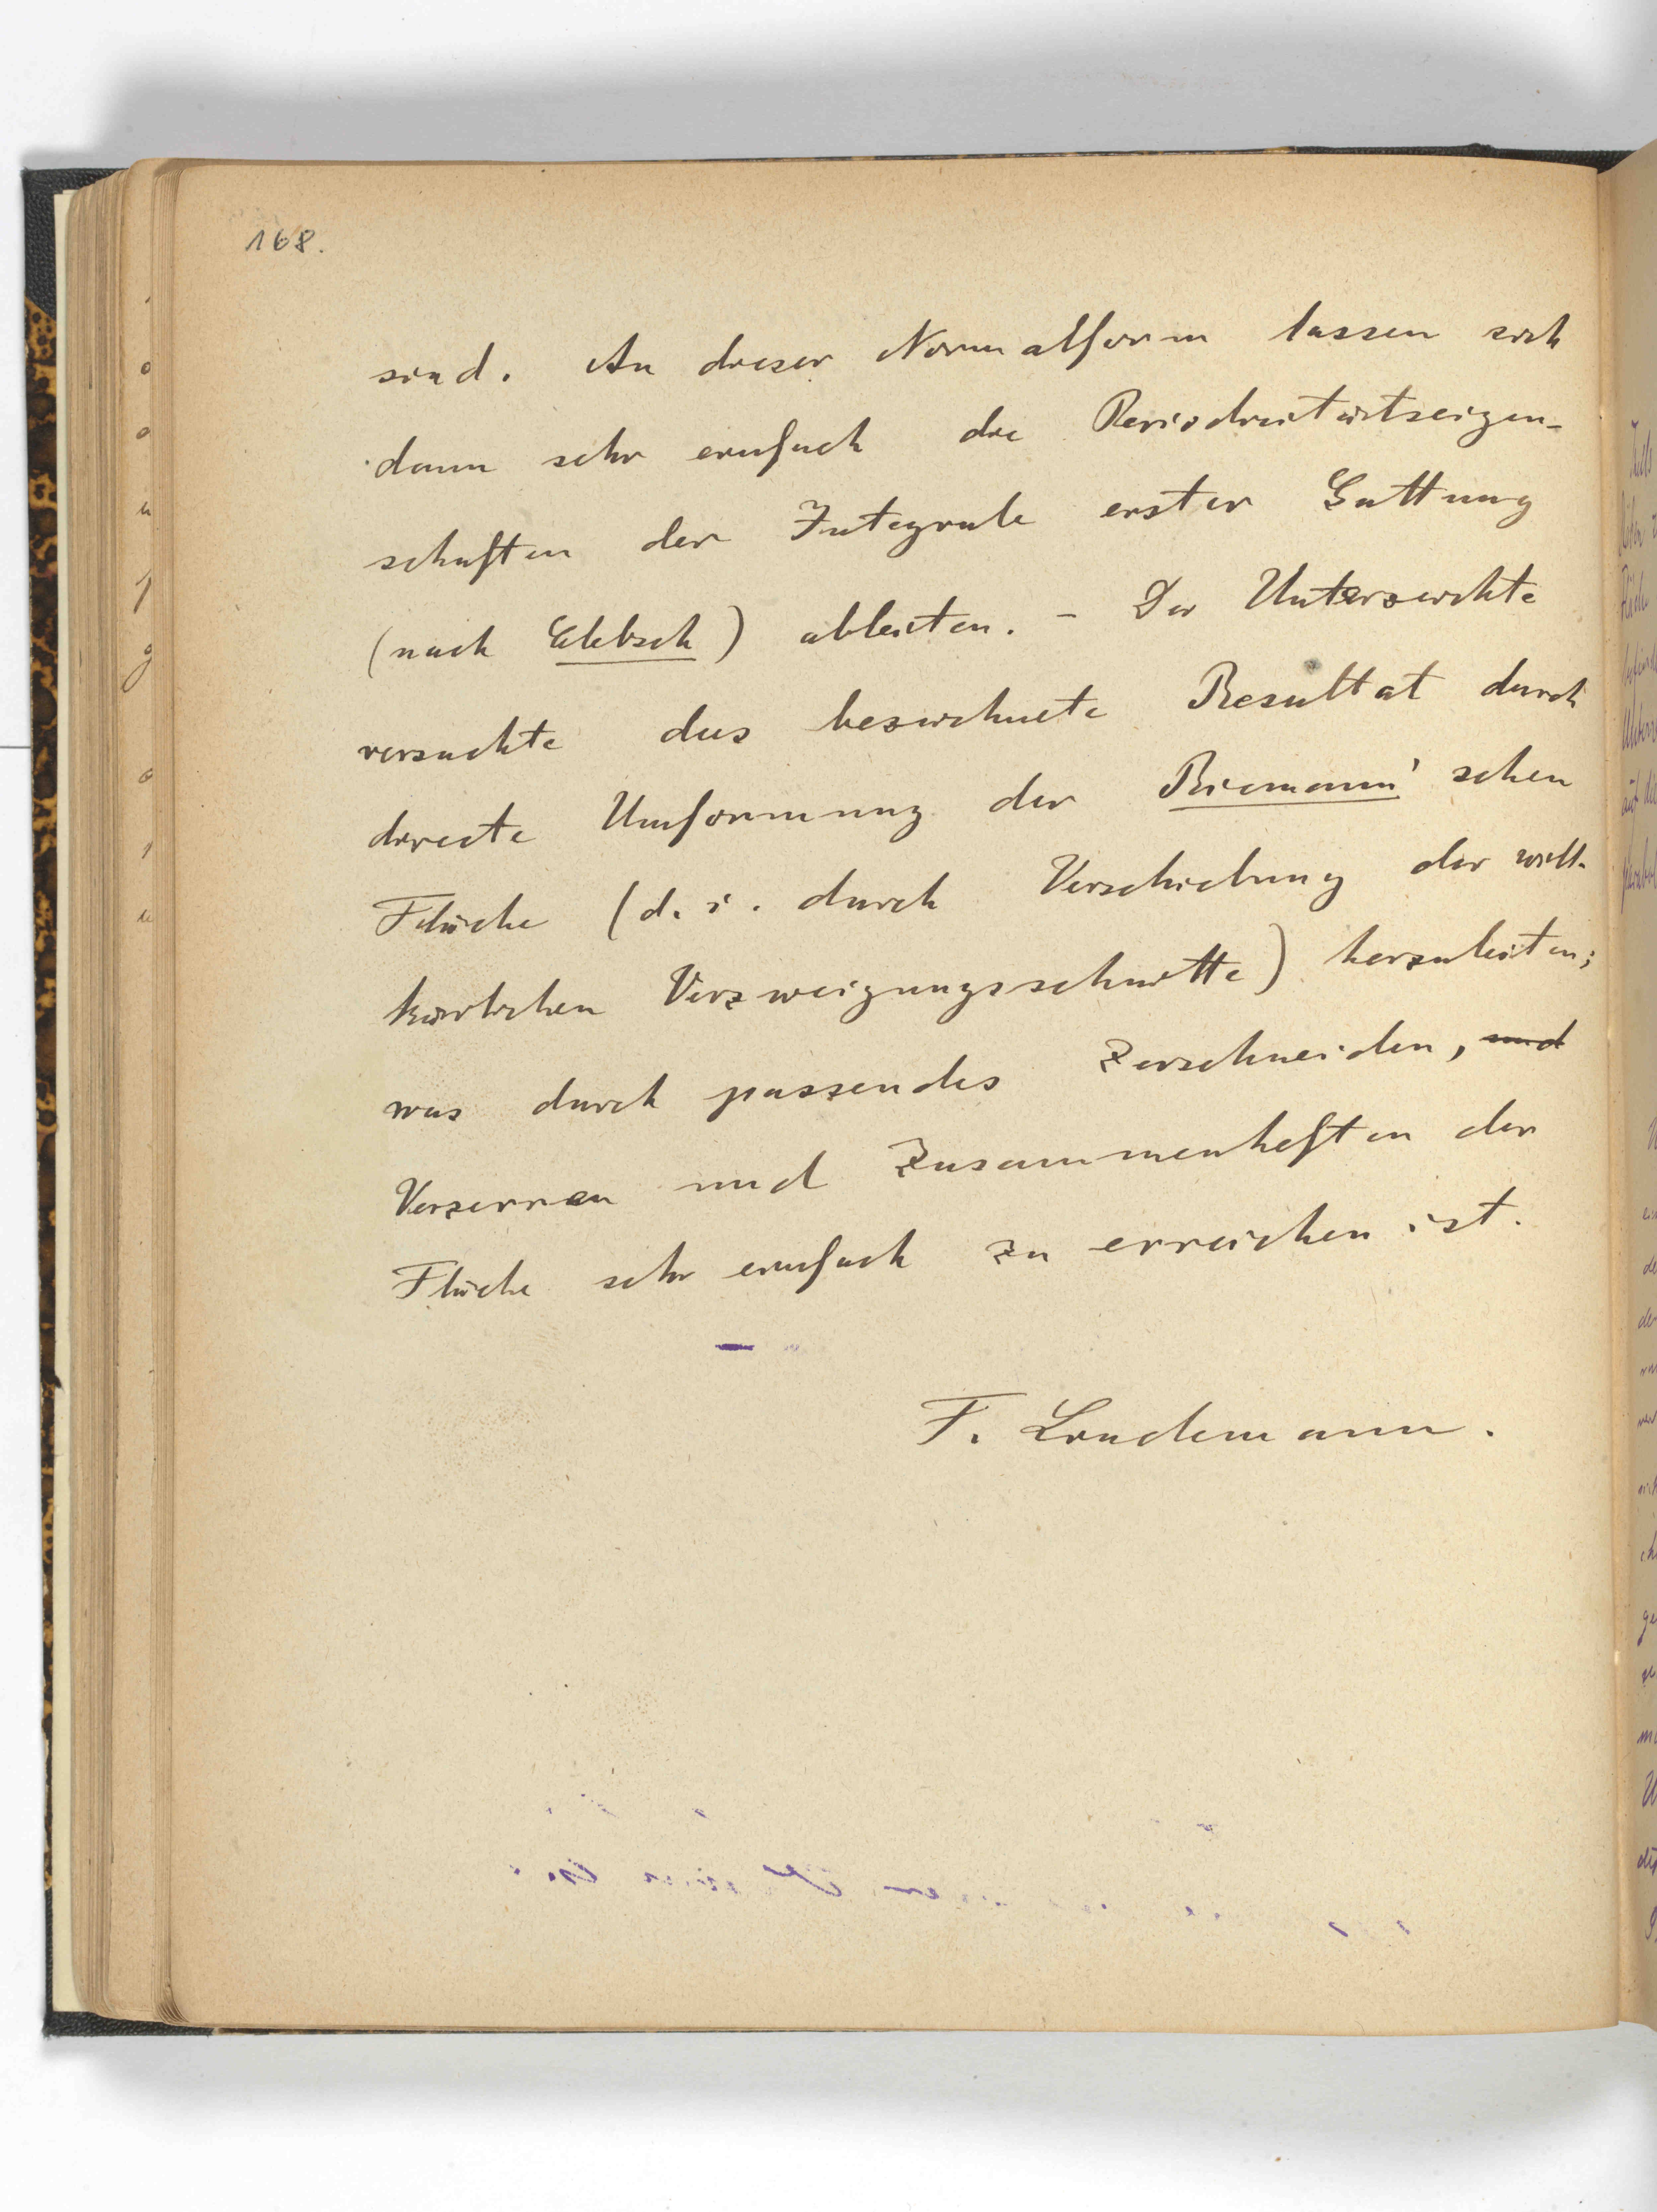 168.
sind. An dieser Normalform lassen sich
dann sehr einfach die Periodicitätseigen-
schaften der Integrale erster Gattung
(nach Clebsch) ableiten. - Der Unterzeichnete
versuchte das bezeichnete Resultat durch
directe Umformung der Riemann'schen
Fläche (d. i. durch Verschiebung der will-
kürlichen Verzweigungsschnitte) herzuleiten;
was durch passendes Zerschneiden, und
Verzerren und Zusammenheften der
Fläche sehr einfach zu erreichen ist.
F. Lindemann.